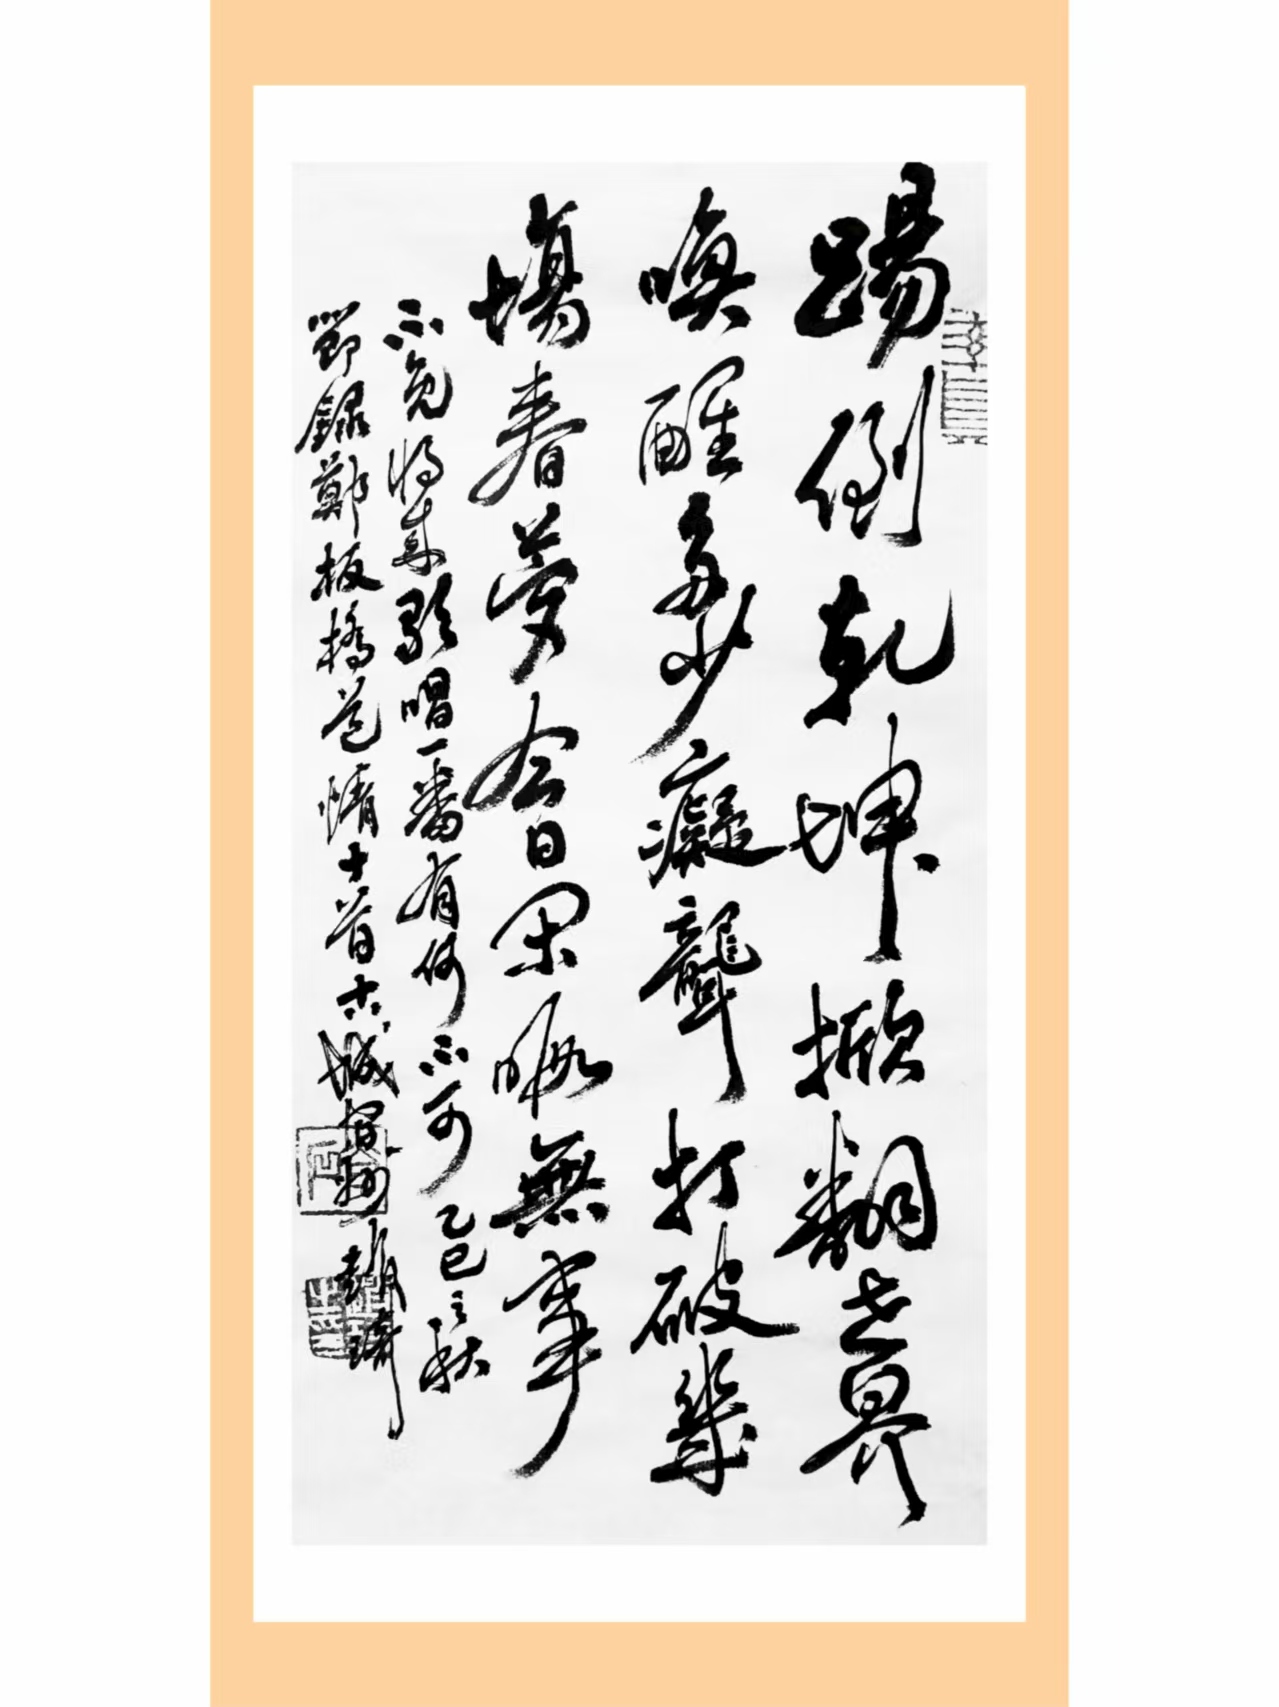 踢倒乾坤掀翻世界
喚醒多少癡聾打破幾
場春夢今日閑暇無事
不免將來歌唱一番有何不可 乙巳之秋
節錄鄭板橋道情十首